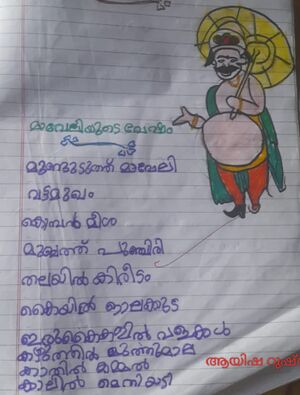 മാവേലിയുടെ വേഷം
മുണ്ടുടുത്ത് മാവേലി
വട്ടമുഖം
കൊമ്പൻ മീശ
മുഖത്ത് പുഞ്ചിരി
തലയിൽ കിരീടം
കൈയിൽ ഓലക്കുട
ഇരുകൈകളിൽ വളകൾ
കഴുത്തിൽ മുത്തുമാല
കാതിൽ കമ്മൽ
കാലിൽ മെതിയടി
ആയിഷ